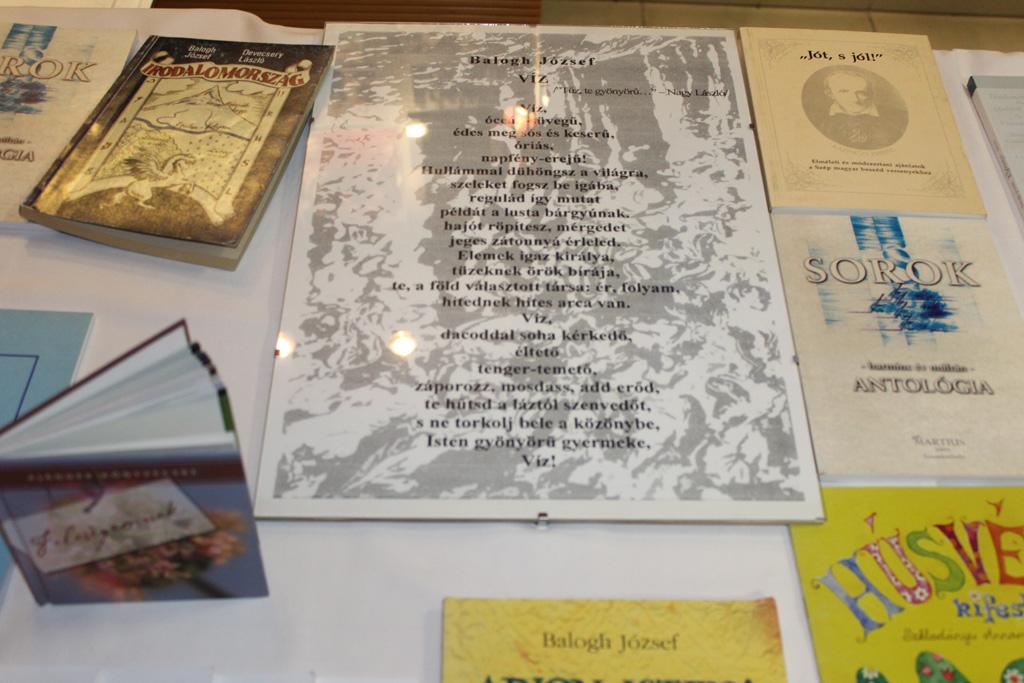 ROK
Balogh József
Devecsery László
IRODALOMORSZÁG
Balogh József
VÍZ
/"Tűz, te gyönyörű…" – Nagy László/
Víz,
édes meg sós és keserű,
óriás,
napfény-erejű!
Hullámmal dühöngsz a világra,
szeleket fogsz be igába,
regulád így mutat
példát a lusta bárgyúnak,
hajót röpítesz, mérgedet
jeges zátonnyá érleled.
Elemek igaz királya,
tüzeknek örök bírája,
te, a föld választott társa: ér, folyam,
hitednek hites arca van.
Víz,
dacoddal soha kérkedő,
éltető
tenger-temető,
záporozz, mosdass, add erőd,
te hűtsd a láztól szenvedőt,
s ne torkolj bele a közönybe,
Isten gyönyörű gyermeke,
Víz!
„Jót, s jól!”
Elméleti és módszertani ajánlatok
a Szép magyar beszéd versenyekhez
SOROK
ANTOLÓGIA
MARTIUS
HÚSVÉ
kifes
Balogh József